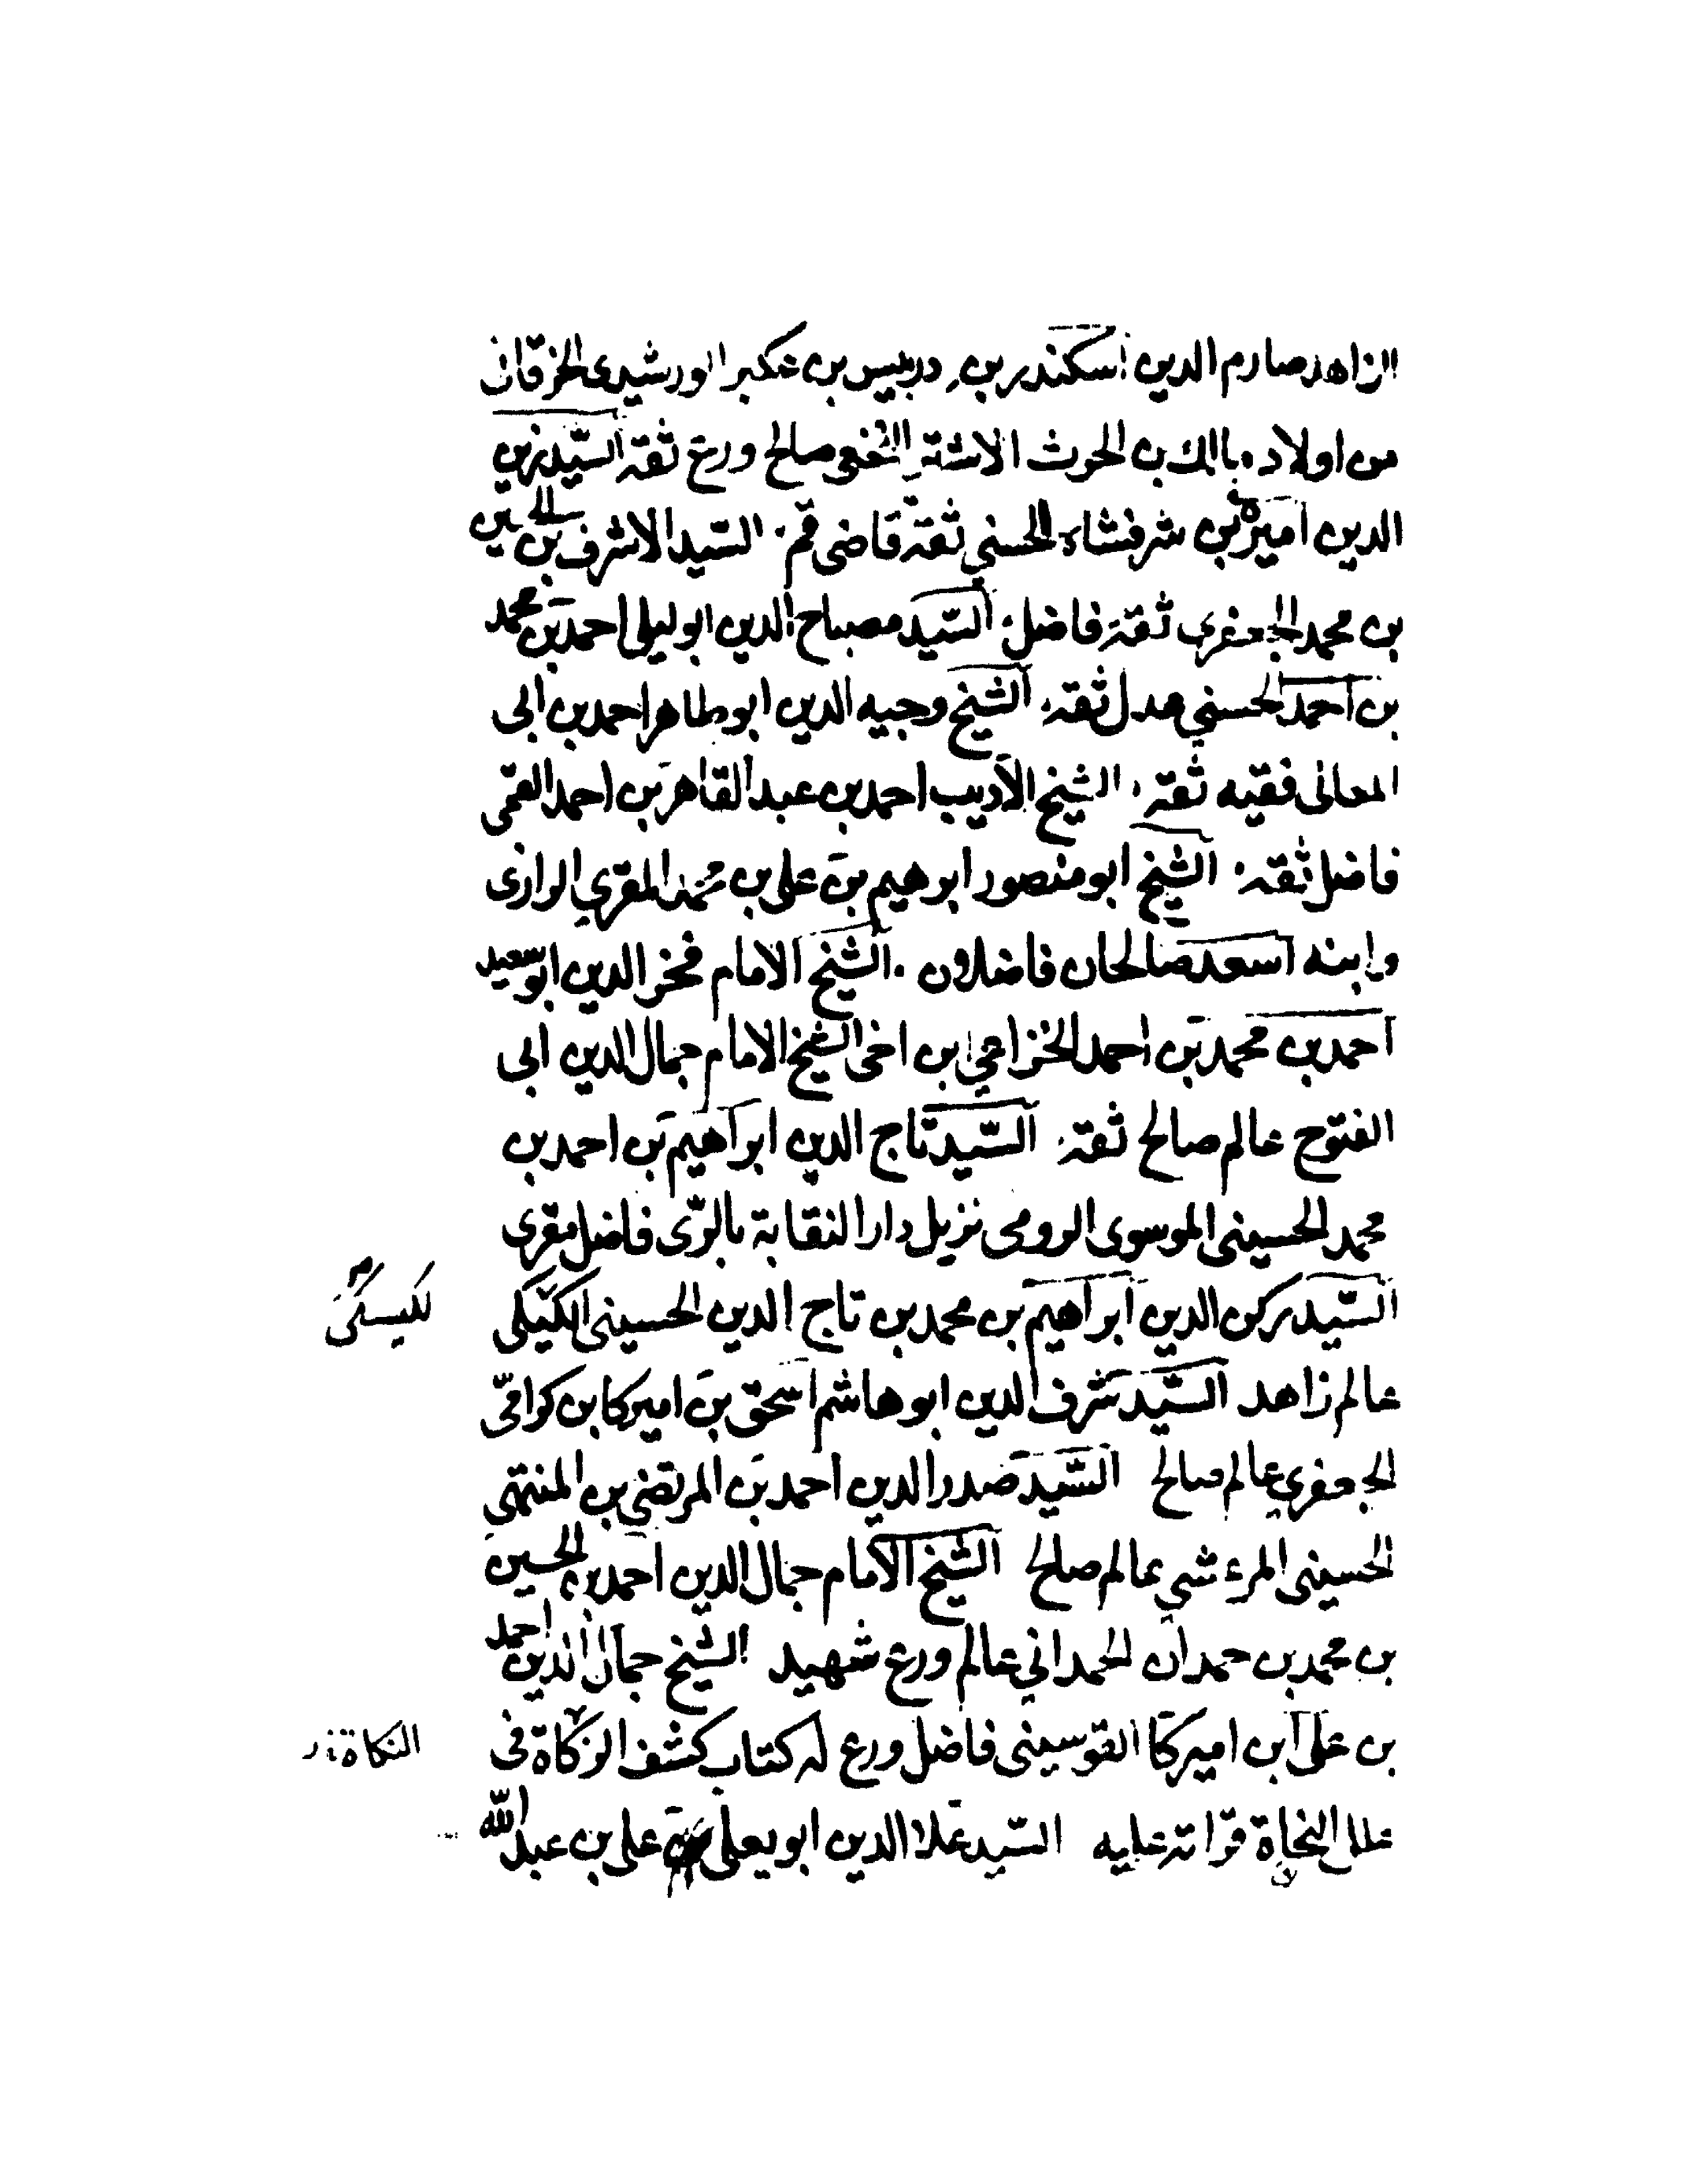 الزاهد صارم الدين اسكندر بن دربيس بن عكبر الورشيدى الخرقانى
من اولاد مالك بن الحرث الاشتر النخعى صالح ورع ثقة السيّد زين
الدين اميرة بن شرفشاه الحسني ثقة قاضى قم السّيد الاشرف بن الحسين
بن محمد الجعفرى ثقة فاضل السّيد مصباح الدين ابو ليلى احمد بن محمد
بن احمد الحسني عدل ثقة الشيخ وجيه الدين ابو طاهر احمد بن ابى
المعالى فقيه ثقة الشيخ الاديب احمد بن عبد القاهر بن احمد القمى
فاضل ثقة الشيخ ابو منصور ابرهيم بن على بن محمد المقري الرازى
وابنه اسعد صالحان فاضلان الشيخ الامام فخر الدين ابو سعيد
احمد بن محمد بن احمد الخزاعي ابن اخى الشيخ الامام جمال الدين ابى
الفتوح عالم صالح ثقة السّيد تاج الدين ابراهيم بن احمد بن
محمد الحسينى الموسوى الرومى نزيل دار النقابة بالرّى فاضل مقرى
السّيد ركن الدين ابراهيم بن محمد بن تاج الدين الحسينى الكيكى
لكيسكى
عالم زاهد السّيد شرف الدين ابو هاشم اسحق بن اميركا بن كرامى
الجعفري عالم صالح السّيد صدر الدين احمد بن المرتضى بن المنتهى
الحسينى المرعشي عالم صالح الشيخ الامام جمال الدين احمد بن الحسين
بن محمد بن حمدان الحمداني عالم ورع شهيد الشيخ جمال الدين احمد
بن على ابن اميركا القوسينى فاضل ورع له كتاب كشف الزكاة فى
النكاة
علل النحاة قراته عليه السّيد علا الدين ابو يعلى على بن عبد الله